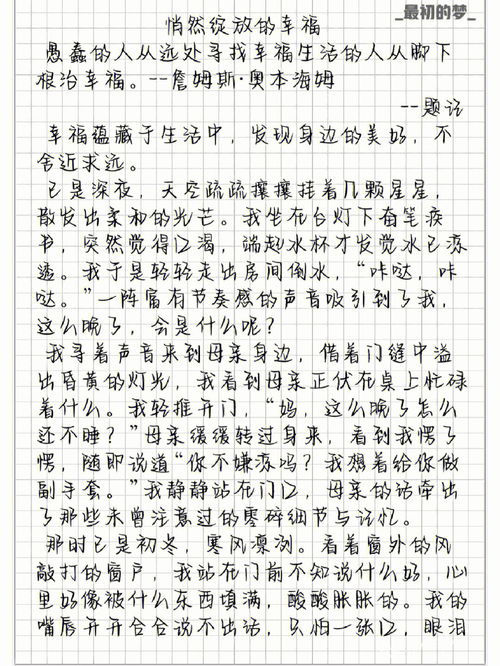 _最初的梦_
悄然绽放的幸福
愚蠢的人从远处寻找幸福生活的人从脚下
根治幸福。--詹姆斯·奥本海姆
--题记
幸福蕴藏于生活中，发现身边的美好，不
舍近求远。
已是深夜，天空疏疏攘攘挂着几颗星星，
散发出柔和的光芒。我坐在台灯下奋笔疾
书，突然觉得口渴，端起水杯才发觉水已凉
透。我于是轻轻走出房间倒水，“咔哒，咔
哒。”一阵富有节奏感的声音吸引到了我，
这么晚了，会是什么呢？
我寻着声音来到母亲身边，借着门缝中溢
出昏黄的灯光，我看到母亲正伏在桌上忙碌
着什么。我轻推开门，“妈，这么晚了怎么
还不睡？”母亲缓缓转过身来，看到我愣了
愣，随即说道“你不嫌凉吗？我想着给你做
副手套。”我静静站在门口，母亲的话牵出
了那些未曾注意过的零碎细节与记忆。
那时已是初冬，寒风凛冽。看着窗外的风
敲打的窗户，我站在门前不知说什么好，心
里好像被什么东西填满，酸酸胀胀的。我的
嘴唇开开合合说不出话，只怕一张口，眼泪